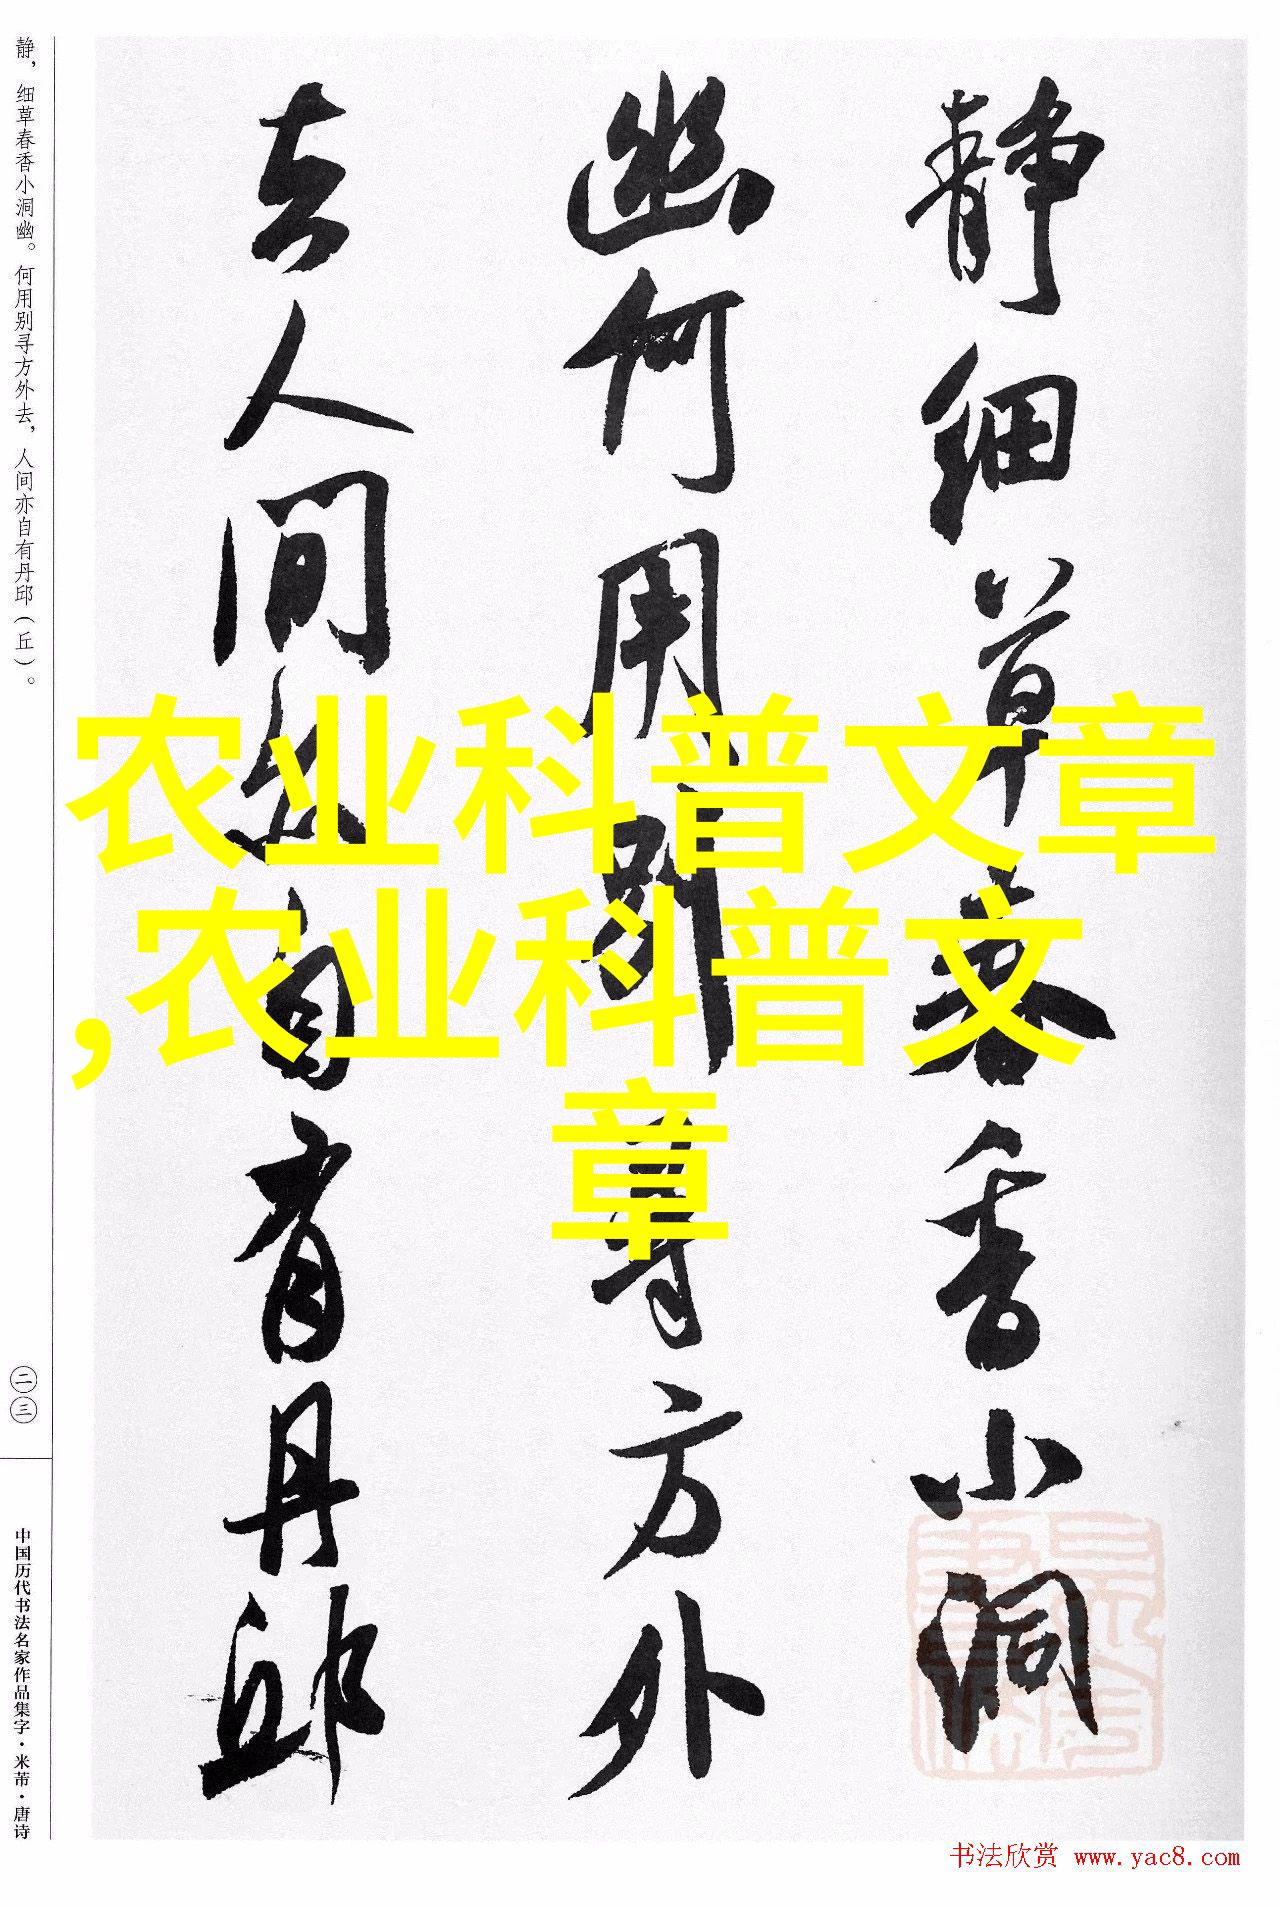 静细草春香小洞
幽何用别寻方外
去人间亦自有丹邱
静，细草春香小洞幽。何用别寻方外去，人间亦自有丹邱（丘）。
二三
中国历代书法名家作品集字·米芾·唐诗
农业科普文章
,农业科普文
章
书法欣赏 www.yac8.com